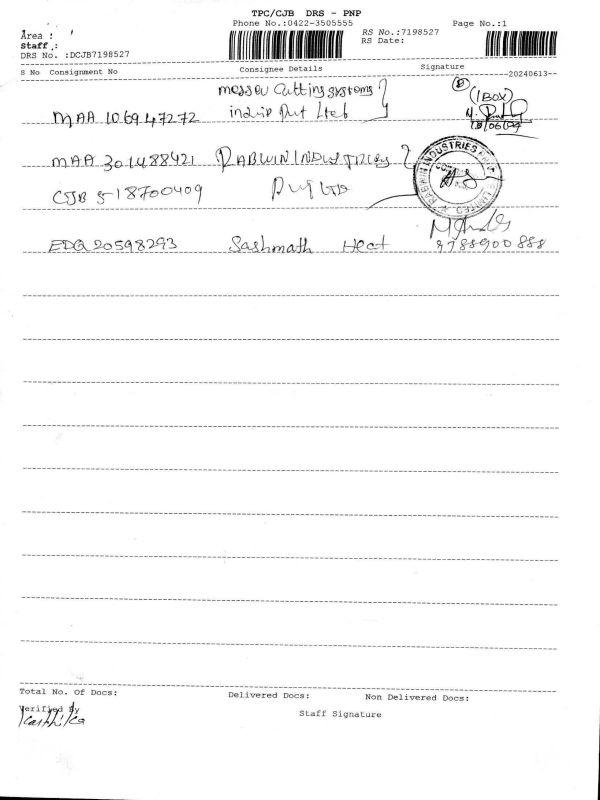 TPC/CJB DRS - PNP
Phone No.:0422-3505555
Page No.:1
Area :
RS No.:7198527
Staff :
RS Date:
DRS No. :DCJB7198527
S No Consignment No
Consignee Details
Signature
--20240613--
messer Cutting systems
(1 BOX)
MAA 106947272
india Pvt Ltd
MAA 301488421 RABWIN INDUSTRIES
CJB 518700409
Pvt LTD
RABWIN INDUSTRIES PRIVATE LIMITED
EDQ 20598293 Sashmath Heat 9788900888
Total No. Of Docs:
Delivered Docs:
Non Delivered Docs:
Verified By
Staff Signature
Karthika